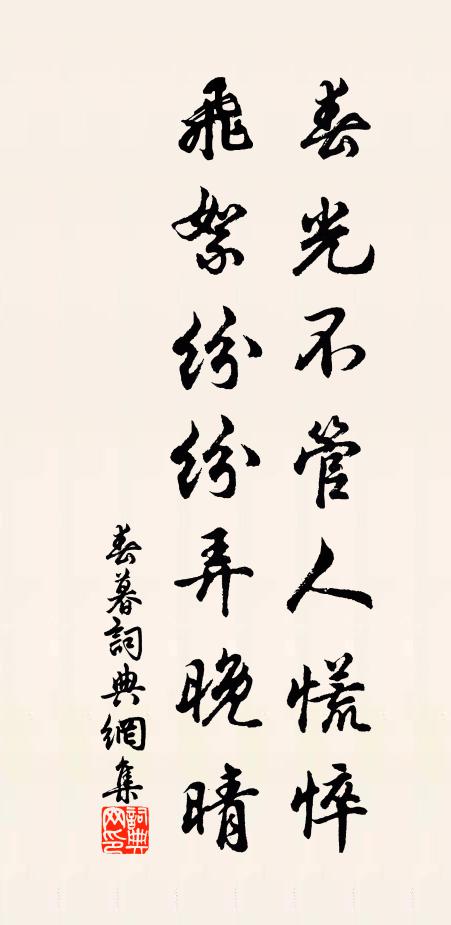 春光不管人慌悴
飛絮紛紛弄晚晴
春暮詞典網集
詞典網印